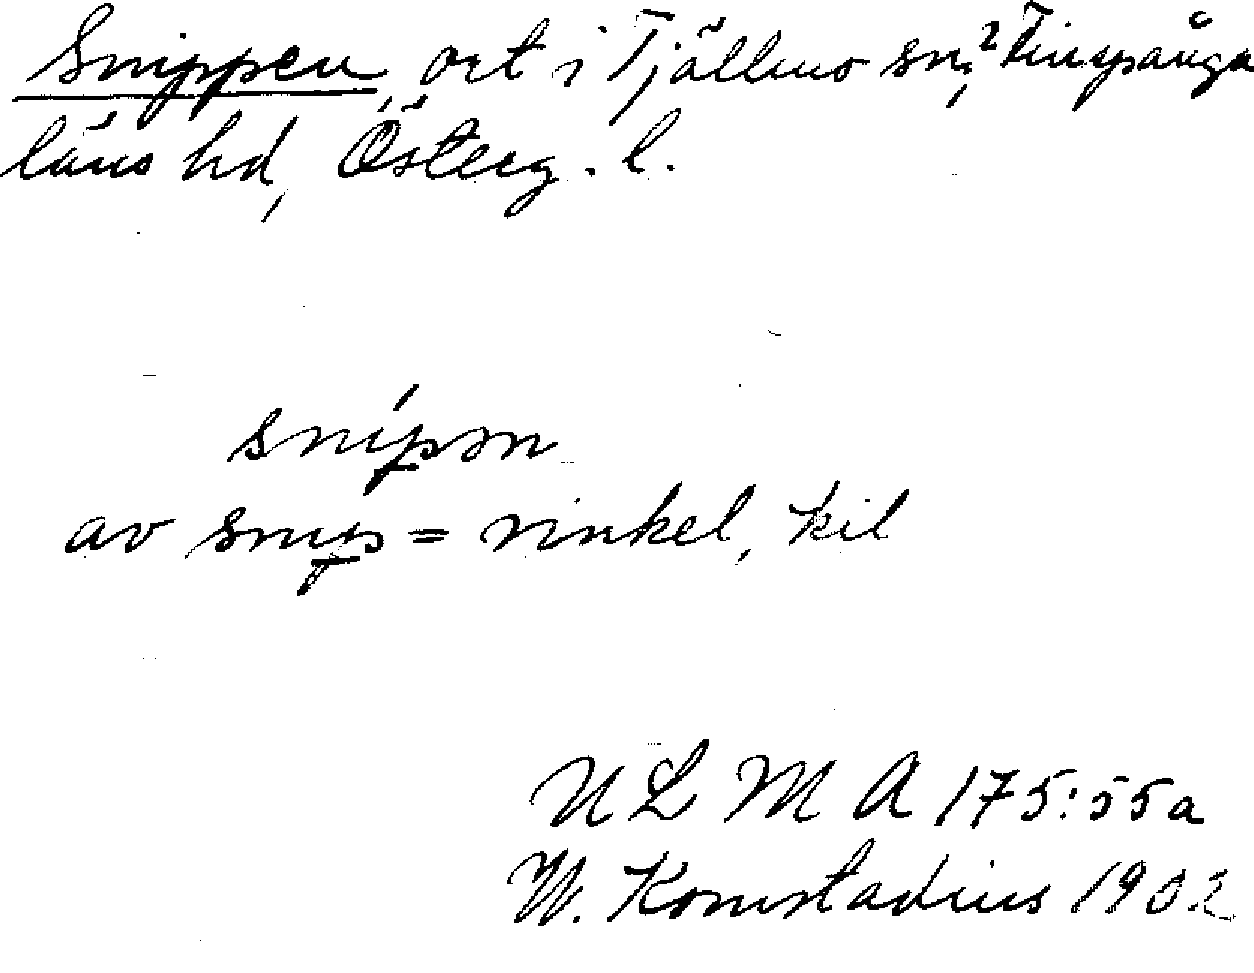 Snippen, ort i Tjällmo sn, Finspånga
läns hd, Österg. l.
snípən
av snip = vinkel, kil
ULMA 175:55a
W. Komstadius 1902